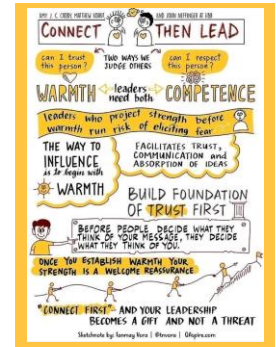 AMY J. C. CUDDY, MATTHEW KOHUT AND JOHN NEFFINGER AT HBR
CONNECT THEN LEAD
can I trust this person?
TWO WAYS WE JUDGE OTHERS
can I respect this person?
WARMTH
leaders need both
COMPETENCE
leaders who project strength before
warmth run risk of eliciting fear
THE WAY TO
INFLUENCE
is to begin with
WARMTH
FACILITATES TRUST,
COMMUNICATION and
ABSORPTION OF IDEAS
BUILD FOUNDATION
OF TRUST FIRST
BEFORE PEOPLE DECIDE WHAT THEY
THINK OF YOUR MESSAGE, THEY DECIDE
WHAT THEY THINK OF YOU.
ONCE YOU ESTABLISH WARMTH YOUR
STRENGTH IS A WELCOME REASSURANCE
"CONNECT FIRST" AND YOUR LEADERSHIP
BECOMES A GIFT AND NOT A THREAT
Sketchnote by: Tanmay Vora | @tnvora | QAspire.com